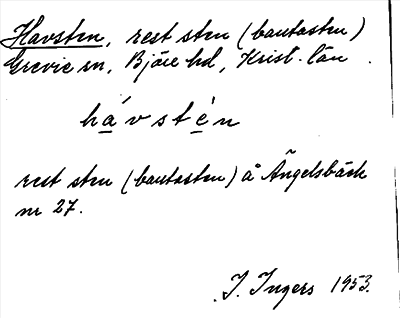 Havsten, rest sten (bautasten)
Grevie sn, Bjäre hd, Krist. län.
hávstèn
rest sten (bautasten) å Ängelsbäck
nr 27.
I. Ingers 1953.